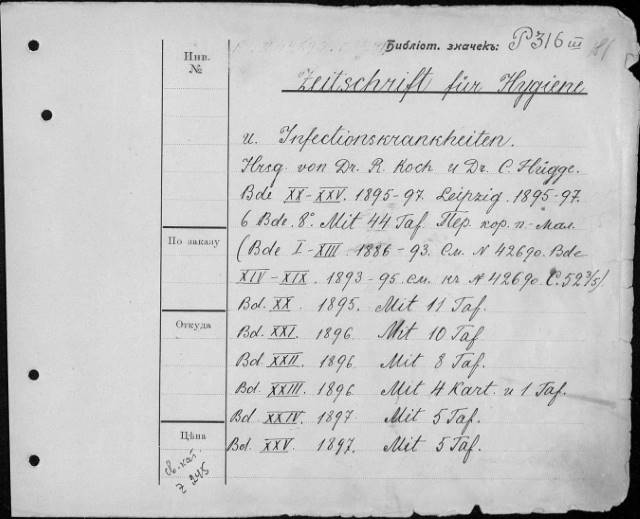 Библіот. значекъ: P316 III
Инв. №
Zeitschrift für Hygiene
u. Infectionskrankheiten.
Hrsg. von Dr. R. Koch u Dr. C. Flügge.
Bde XX-XXV. 1895-97. Leipzig. 1895-97.
6 Bde. 8°. Mit 44 Taf. Пер. кор. п.-мал.
(Bde I-XIII 1886-93. См. N 42690. Bde
По заказу
XIV-XIX. 1893-95. см. къ N 42690. С. 52 3/5).
Bd. XX. 1895. Mit 11 Taf.
Откуда
Bd. XXI. 1896. Mit 10 Taf.
Bd. XXII. 1896 Mit 8 Taf.
Bd. XXIII. 1896 Mit 4 Kart. u 1 Taf.
Bd. XXIV. 1897 Mit 5 Taf.
Цѣна
Bd. XXV. 1897. Mit 5 Taf.
св. кат.
Z 245